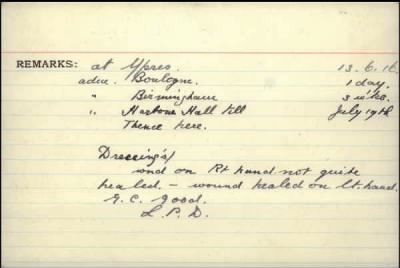 REMARKS: at Ypres. 13.6.16.
adm. Boulogne. 1 day.
" Birmingham 3 wks.
" Harbour Hall till July 19th
Thence here.
Dressings/
wnd on Rt hand not quite
healed. – wound healed on lt. hand.
G.C. good.
L.P.D.